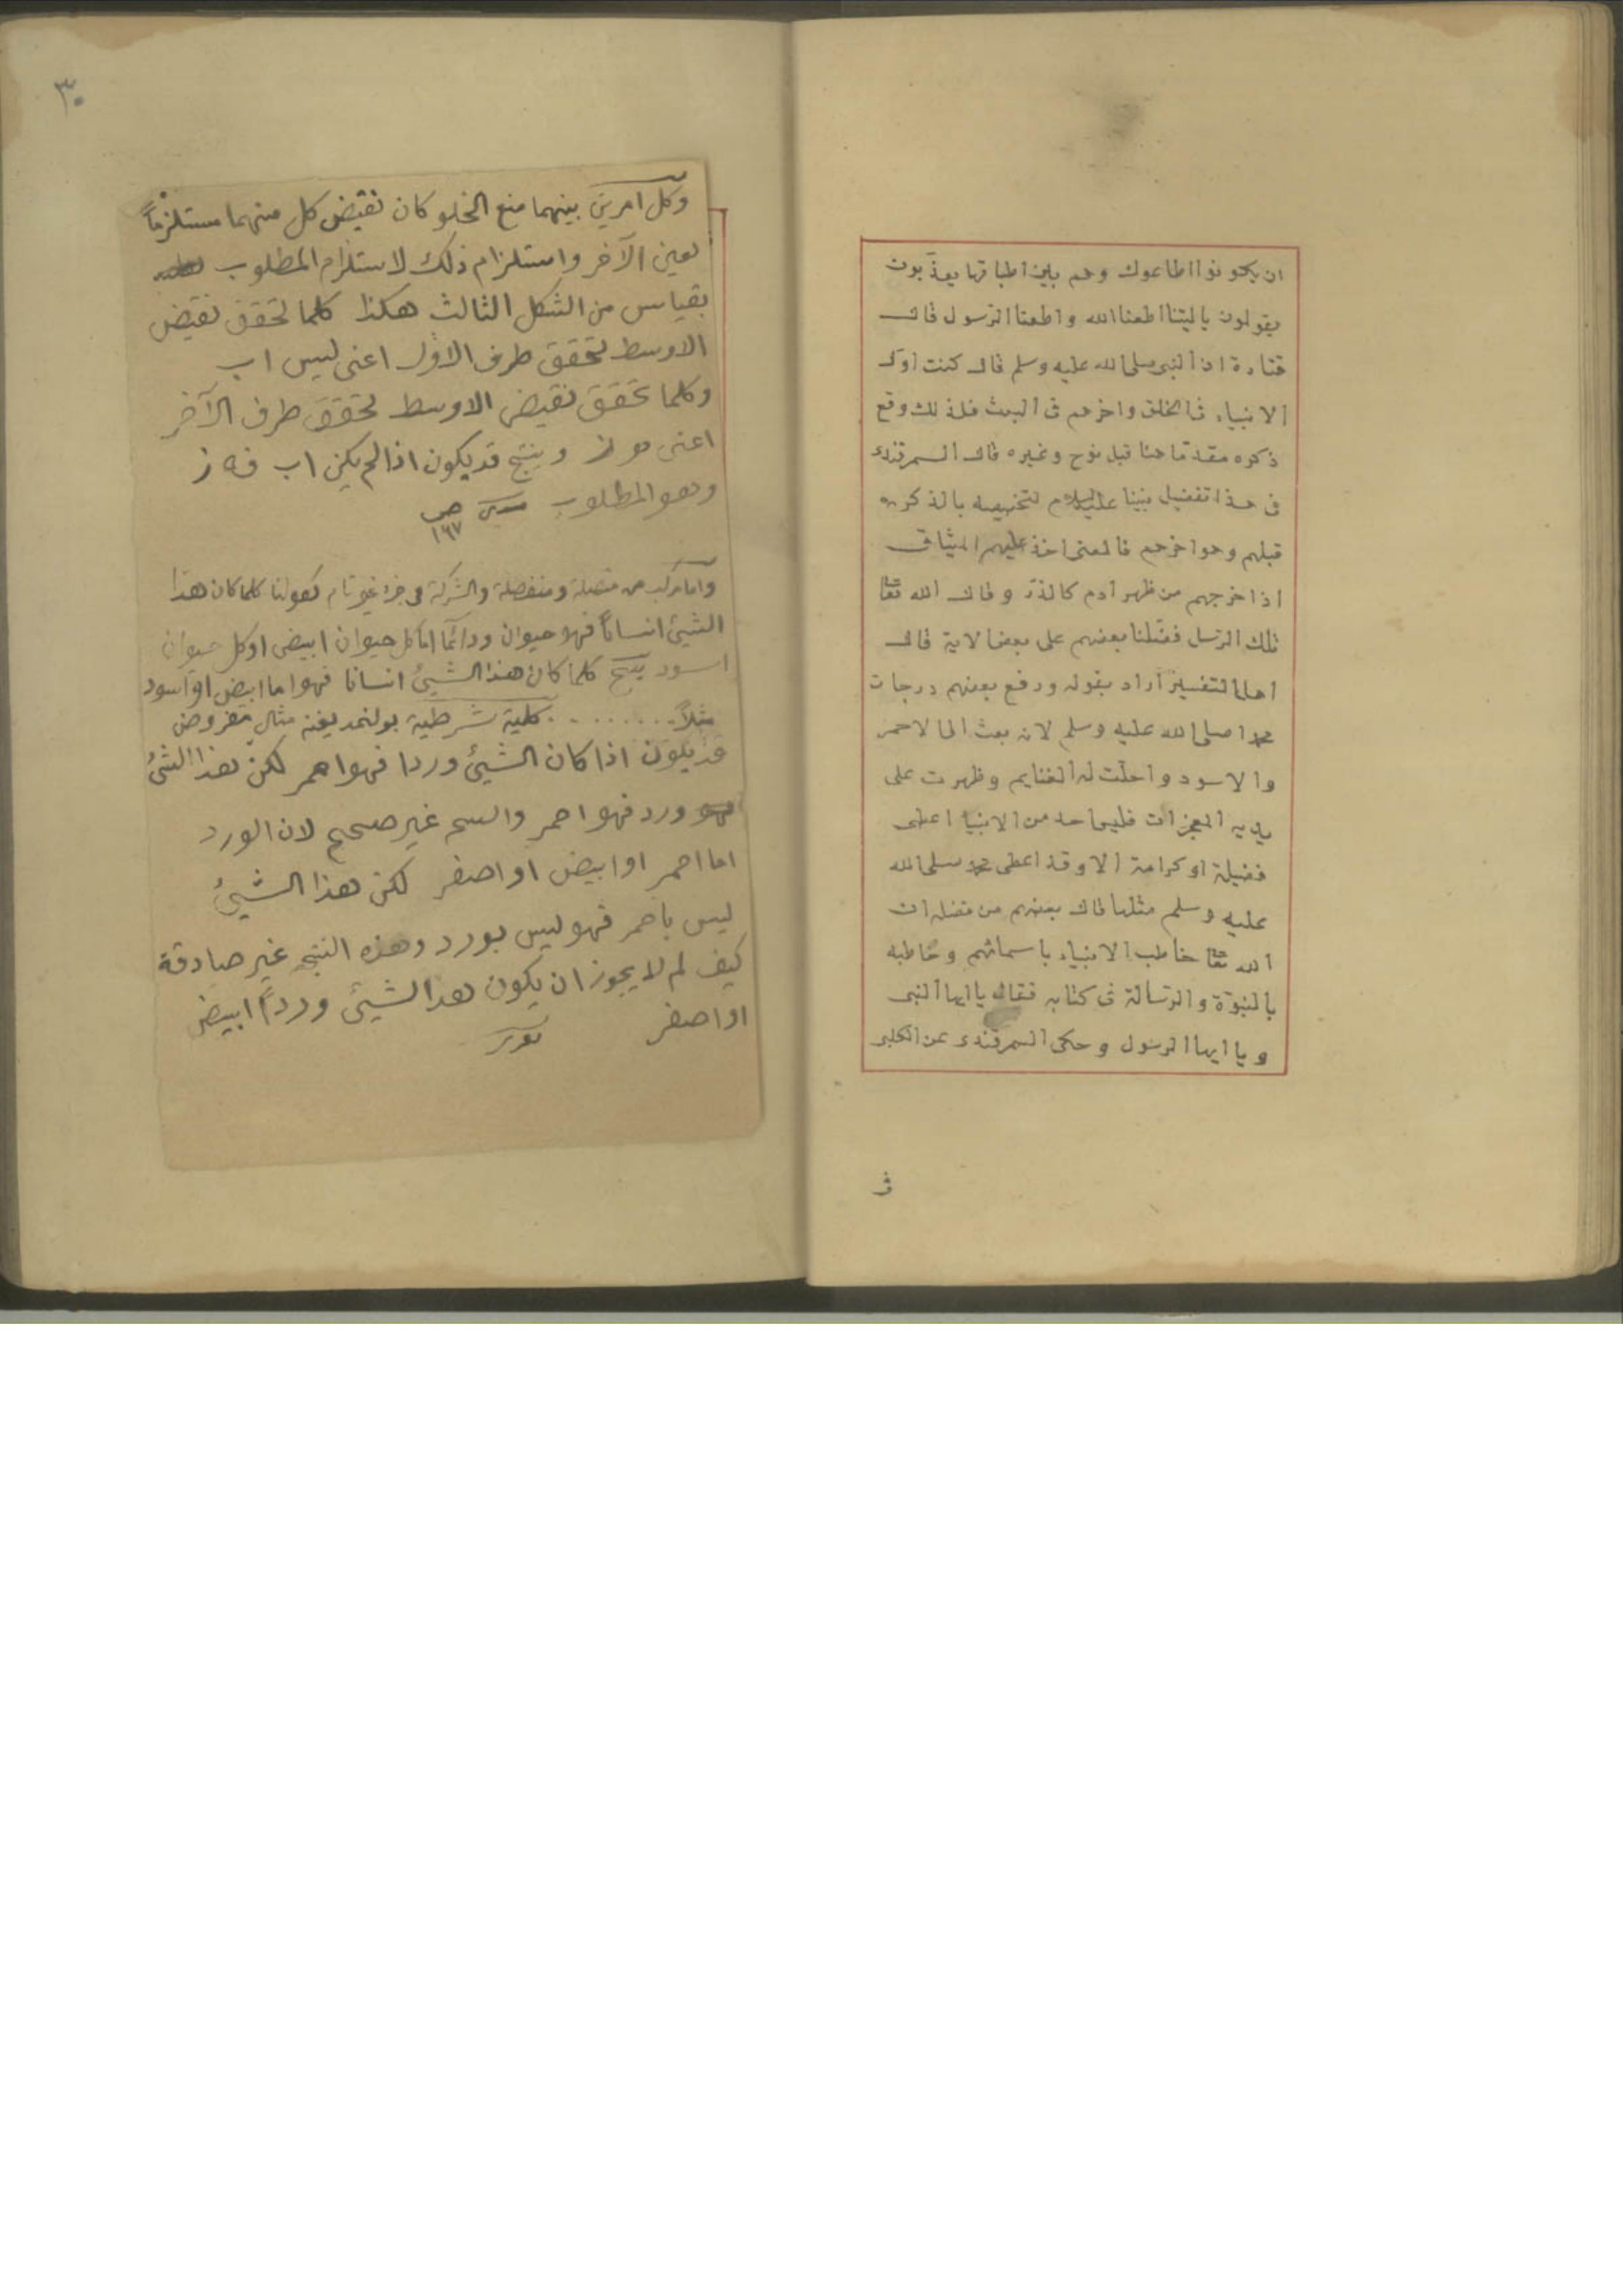 ان يكونوا اطاعوك وهم بين اطباقها يعذّبون
يقولون ياليتنا اطعنا الله واطعنا الرسول قال
قتادة ان النبى صلى الله عليه وسلم قال كنت اوّل
الانبياء فى الخلق واخرهم فى البعث فلذلك وقع
ذكره مقدما هنا قبل نوح وغيره قال السمرقندى
فى هذا تفضيل نبينا عليه السلام لتخصيصه بالذكر
قبلهم وهو اخرهم فالمعنى اخذ عليهم الميثاق
اذ اخرجهم من ظهر ادم كالذرّ وقال الله تعا
تلك الرسل فضّلنا بعضهم على بعض الاية قال
اهل التفسير اراد بقوله ورفع بعضهم درجات
محمدا صلى الله عليه وسلم لانه بعث الى الاحمر
والاسود واحلّت له الغنايم وظهرت على
يديه المعجزات فليس احد من الانبيا اعطى
فضيلة او كرامة الا وقد اعطى محمد صلى الله
عليه وسلم مثلها قال بعضهم من فضله ان
الله تعا خاطب الانبياء باسمائهم وخاطبه
بالنبوّة والرسالة فى كتابه فقال يا ايها النبى
ويا ايها الرسول وحكى السمرقندى عن الكلبى
٣٠
وكل امرين بينهما منع الخلو كان نقيض كل منهما مستلزماً
لعين الآخر واستلزام ذلك لاستلزام المطلوب
بقياس من الشكل الثالث هكذا كلما تحقق نقيض
الاوسط تحقق طرف الاول اعنى ليس اب
وكلما تحقق نقيض الاوسط تحقق طرف الآخر
اعنى ه ز وينتج قد يكون اذا لم يكن اب فه ز
وهو المطلوب ص
١٦٧
واما مركب من متصلة ومنفصلة والشركة فى جزء غير تام كقولنا كلما كان هذا
الشيئ انساناً فهو حيوان ودائما اما كل حيوان ابيض او كل حيوان
اسود ينتج كلما كان هذا الشيئ انسانا فهو اما ابيض او اسود
مثلاً ........ كلية شرطية بولنمديغنه مثال مفروض
قد يكون اذا كان الشيئ وردا فهو احمر لكن هذا الشئ
ورد فهو احمر غير صحيح لان الورد
اما احمر او ابيض او اصفر لكن هذا الشيئ
ليس باحمر فهو ليس بورد وهذه النتيجه غير صادقة
كيف لم لا يجوز ان يكون هذا الشيئ ورداً ابيض
او اصفر